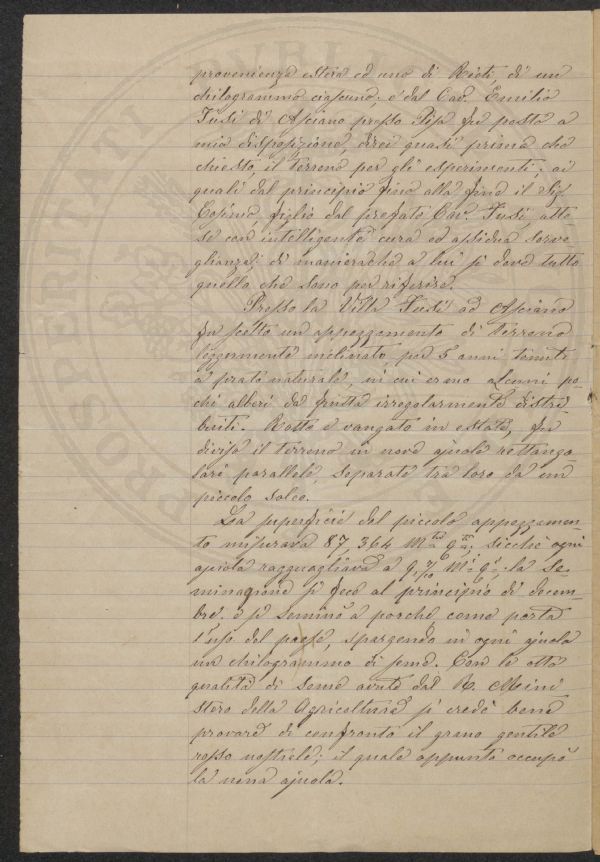 provenienza estera ed uno di Rieti, di un
chilogrammo ciascuno, e dal Cav. Emilio
Fusi di Asciano presso Pisa fu posto a
mia disposizione, direi quasi prima che
chiesto, il terreno per gli esperimenti; ai
quali dal principio fino alla fine il Sig.
Cosimo, figlio del prefato Cav. Fusi, atte
se con intelligente cura ed assidua sorve
glianza; di maniera che a lui si deve tutto
quello che sono per riferire.
Presso la Villa Fusi ad Asciano
fu scelto un appezzamento di terreno
leggermente inclinato, per 5 anni tenuto
a prato naturale, in cui erano alcuni po-
chi alberi da frutta irregolarmente distri
buiti. Rotto e vangato in estate, fu
diviso il terreno in nove ajuole rettango
lari parallele, separate tra loro da un
piccolo solco.
La superficie del piccolo appezzamen-
to misurava 87,364 M. q.; sicchè ogni
ajuola ragguagliava a 9,70 M. q. La se-
minagione si fece al principio di decem-
bre, e si seminò a porche, come porta
l'uso del paese, spargendo in ogni ajuola
un chilogrammo di seme. Con le otto
qualità di seme avute dal R. Mini
stero della Agricoltura si credè bene
provare di confronto il grano gentile
rosso nostrale; il quale appunto occupò
la nona ajuola.
PROSPERITATI
PUBLIC